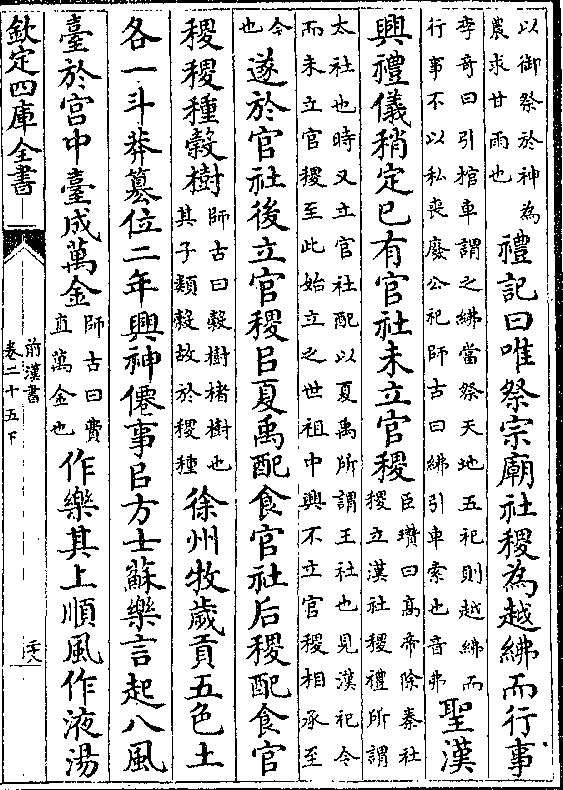 以御祭於神為
農求甘雨也
禮記曰唯祭宗廟社稷為越紼而行事
李奇曰引棺車謂之紼當祭天地五祀則越紼而
行事不以私喪廢公祀師古曰紼引車索也音弗
聖漢
興禮儀稍定已有官社未立官稷
臣瓚曰高帝除秦社
稷立漢社稷禮所謂
太社也時又立官社配以夏禹所謂王社也見漢祀令
而未立官稷至此始立之世祖中興不立官稷相承至
今
也
遂於官社後立官稷㠯夏禹配食官社后稷配食官
稷稷種榖樹
師古曰榖樹楮樹也
其子類穀故於稷種
徐州牧歲貢五色土
各一斗莽篡位二年興神僊事㠯方士蘇樂言起八風
臺於宫中臺成萬金
師古曰費
直萬金也
作樂其上順風作液湯
欽定四庫全書
前漢書
卷二十五下